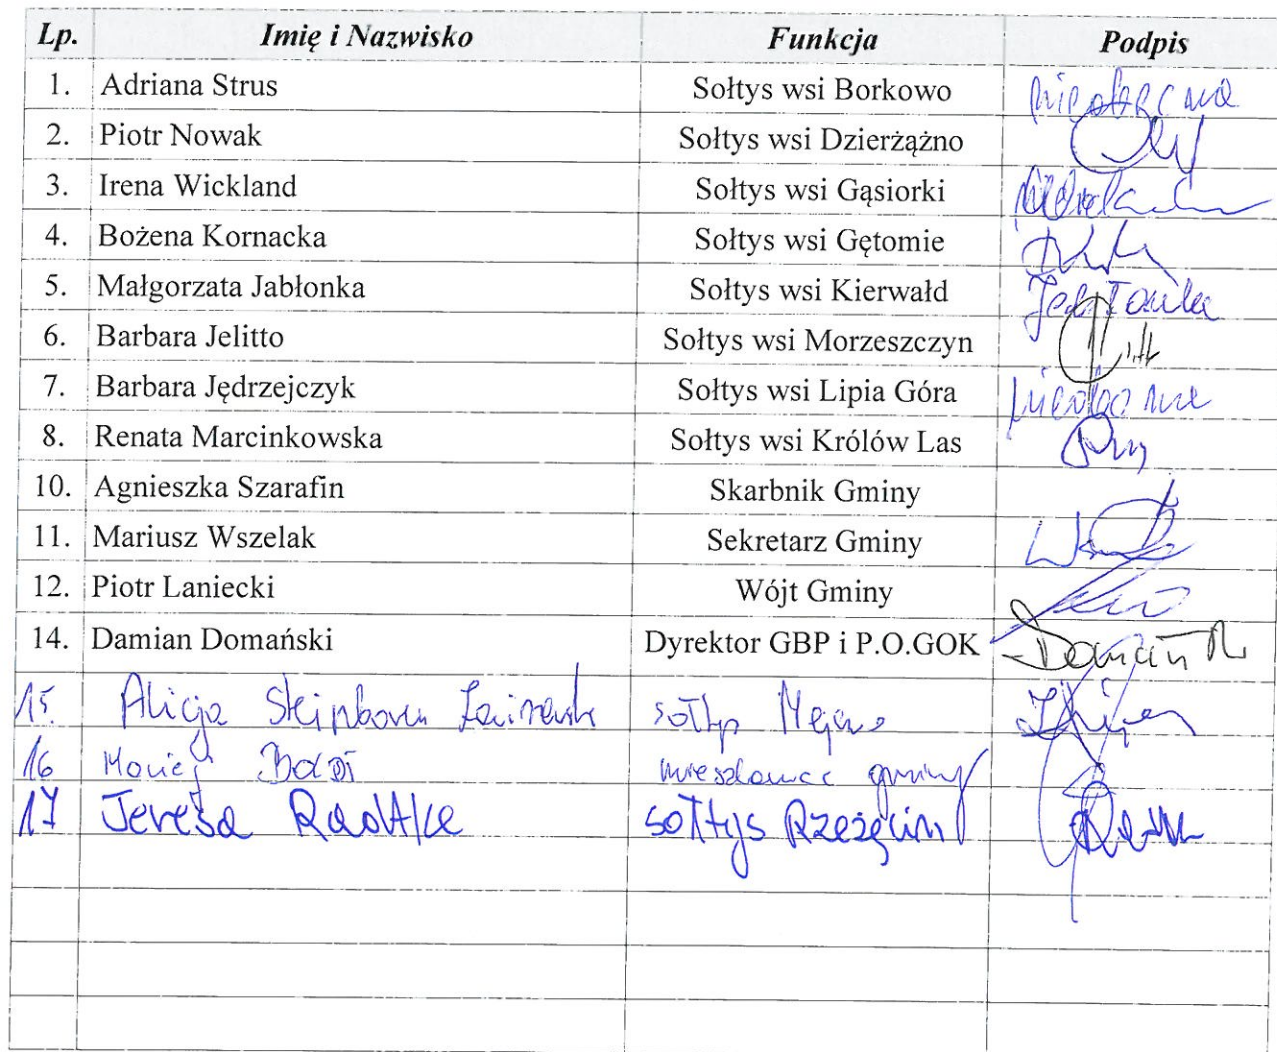 Lp. Imię i Nazwisko Funkcja Podpis
1. Adriana Strus Sołtys wsi Borkowo nieobecna
2. Piotr Nowak Sołtys wsi Dzierżążno
3. Irena Wickland Sołtys wsi Gąsiorki
4. Bożena Kornacka Sołtys wsi Gętomie
5. Małgorzata Jabłonka Sołtys wsi Kierwałd Jabłonka
6. Barbara Jelitto Sołtys wsi Morzeszczyn
7. Barbara Jędrzejczyk Sołtys wsi Lipia Góra
8. Renata Marcinkowska Sołtys wsi Królów Las
10. Agnieszka Szarafin Skarbnik Gminy
11. Mariusz Wszelak Sekretarz Gminy
12. Piotr Laniecki Wójt Gminy
14. Damian Domański Dyrektor GBP i P.O.GOK
15. Alicja sołtys
16 Maciej mieszkaniec gminy
17 Teresa Radtke sołtys Rzeżęcin